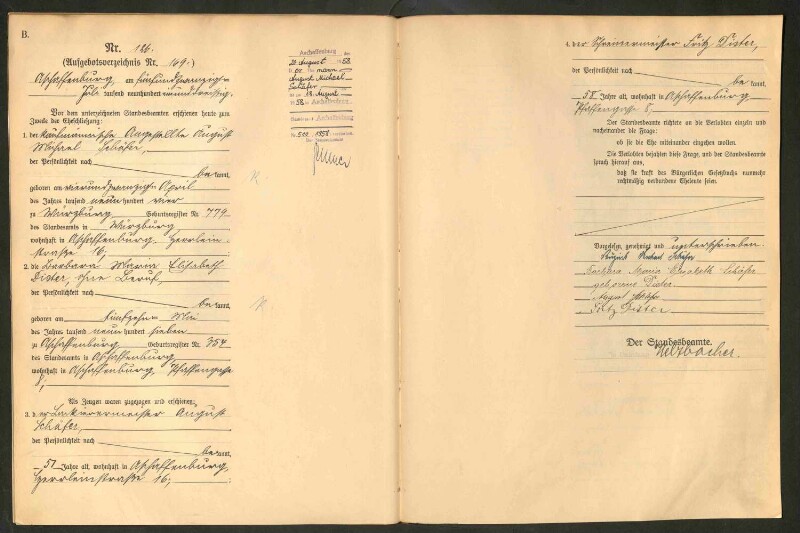 B.
Nr. 186.
(Aufgebotsverzeichnis Nr. 169.)
Aschaffenburg, am fünfundzwanzig-
Juli tausend neunhundert neununddreissig.
Vor dem unterzeichneten Standesbeamten erschienen heute zum
Zweck der Eheschließung:
1. der kaufmännische Angestellte August
Michael Schäfer,
der Persönlichkeit nach
be kannt,
geboren am vierundzwanzigsten April
des Jahres tausend neunhundert vier
zu Würzburg Geburtsregister Nr. 779
des Standesamts in Würzburg
wohnhaft in Aschaffenburg, Herrlein-
straße 16;
2. die Barbara Maria Elisabeth
Dister, ohne Beruf,
der Persönlichkeit nach
be kannt,
geboren am fünfzehnten Mai
des Jahres tausend neunhundert sieben
zu Aschaffenburg Geburtsregister Nr. 354
des Standesamts in Aschaffenburg,
wohnhaft in Aschaffenburg, Pfaffengasse
8;
Als Zeugen waren zugezogen und erschienen:
3. der Lackierermeister August
Schäfer,
der Persönlichkeit nach
be kannt,
57 Jahre alt, wohnhaft in Aschaffenburg,
Herrleinstraße 16;
Aschaffenburg, den
20. August 1958
mann
August Michael
Schäfer
18. August
1958 in Aschaffenburg
Aschaffenburg
Nr. 500/1958
K
K
4. der Schreinermeister Fritz Dister,
der Persönlichkeit nach
be kannt,
58 Jahre alt, wohnhaft in Aschaffenburg
Pfaffengasse 8.
Der Standesbeamte richtete an die Verlobten einzeln und
nacheinander die Frage:
ob sie die Ehe miteinander eingehen wollen.
Die Verlobten bejahten diese Frage, und der Standesbeamte
sprach hierauf aus,
daß sie kraft des Bürgerlichen Gesetzbuchs nunmehr
rechtmäßig verbundene Eheleute seien.
Vorgelesen, genehmigt und unterschrieben
August Michael Schäfer
Barbara Maria Elisabeth Schäfer
geborene Dister
August Schäfer
Fritz Dister
Der Standesbeamte.